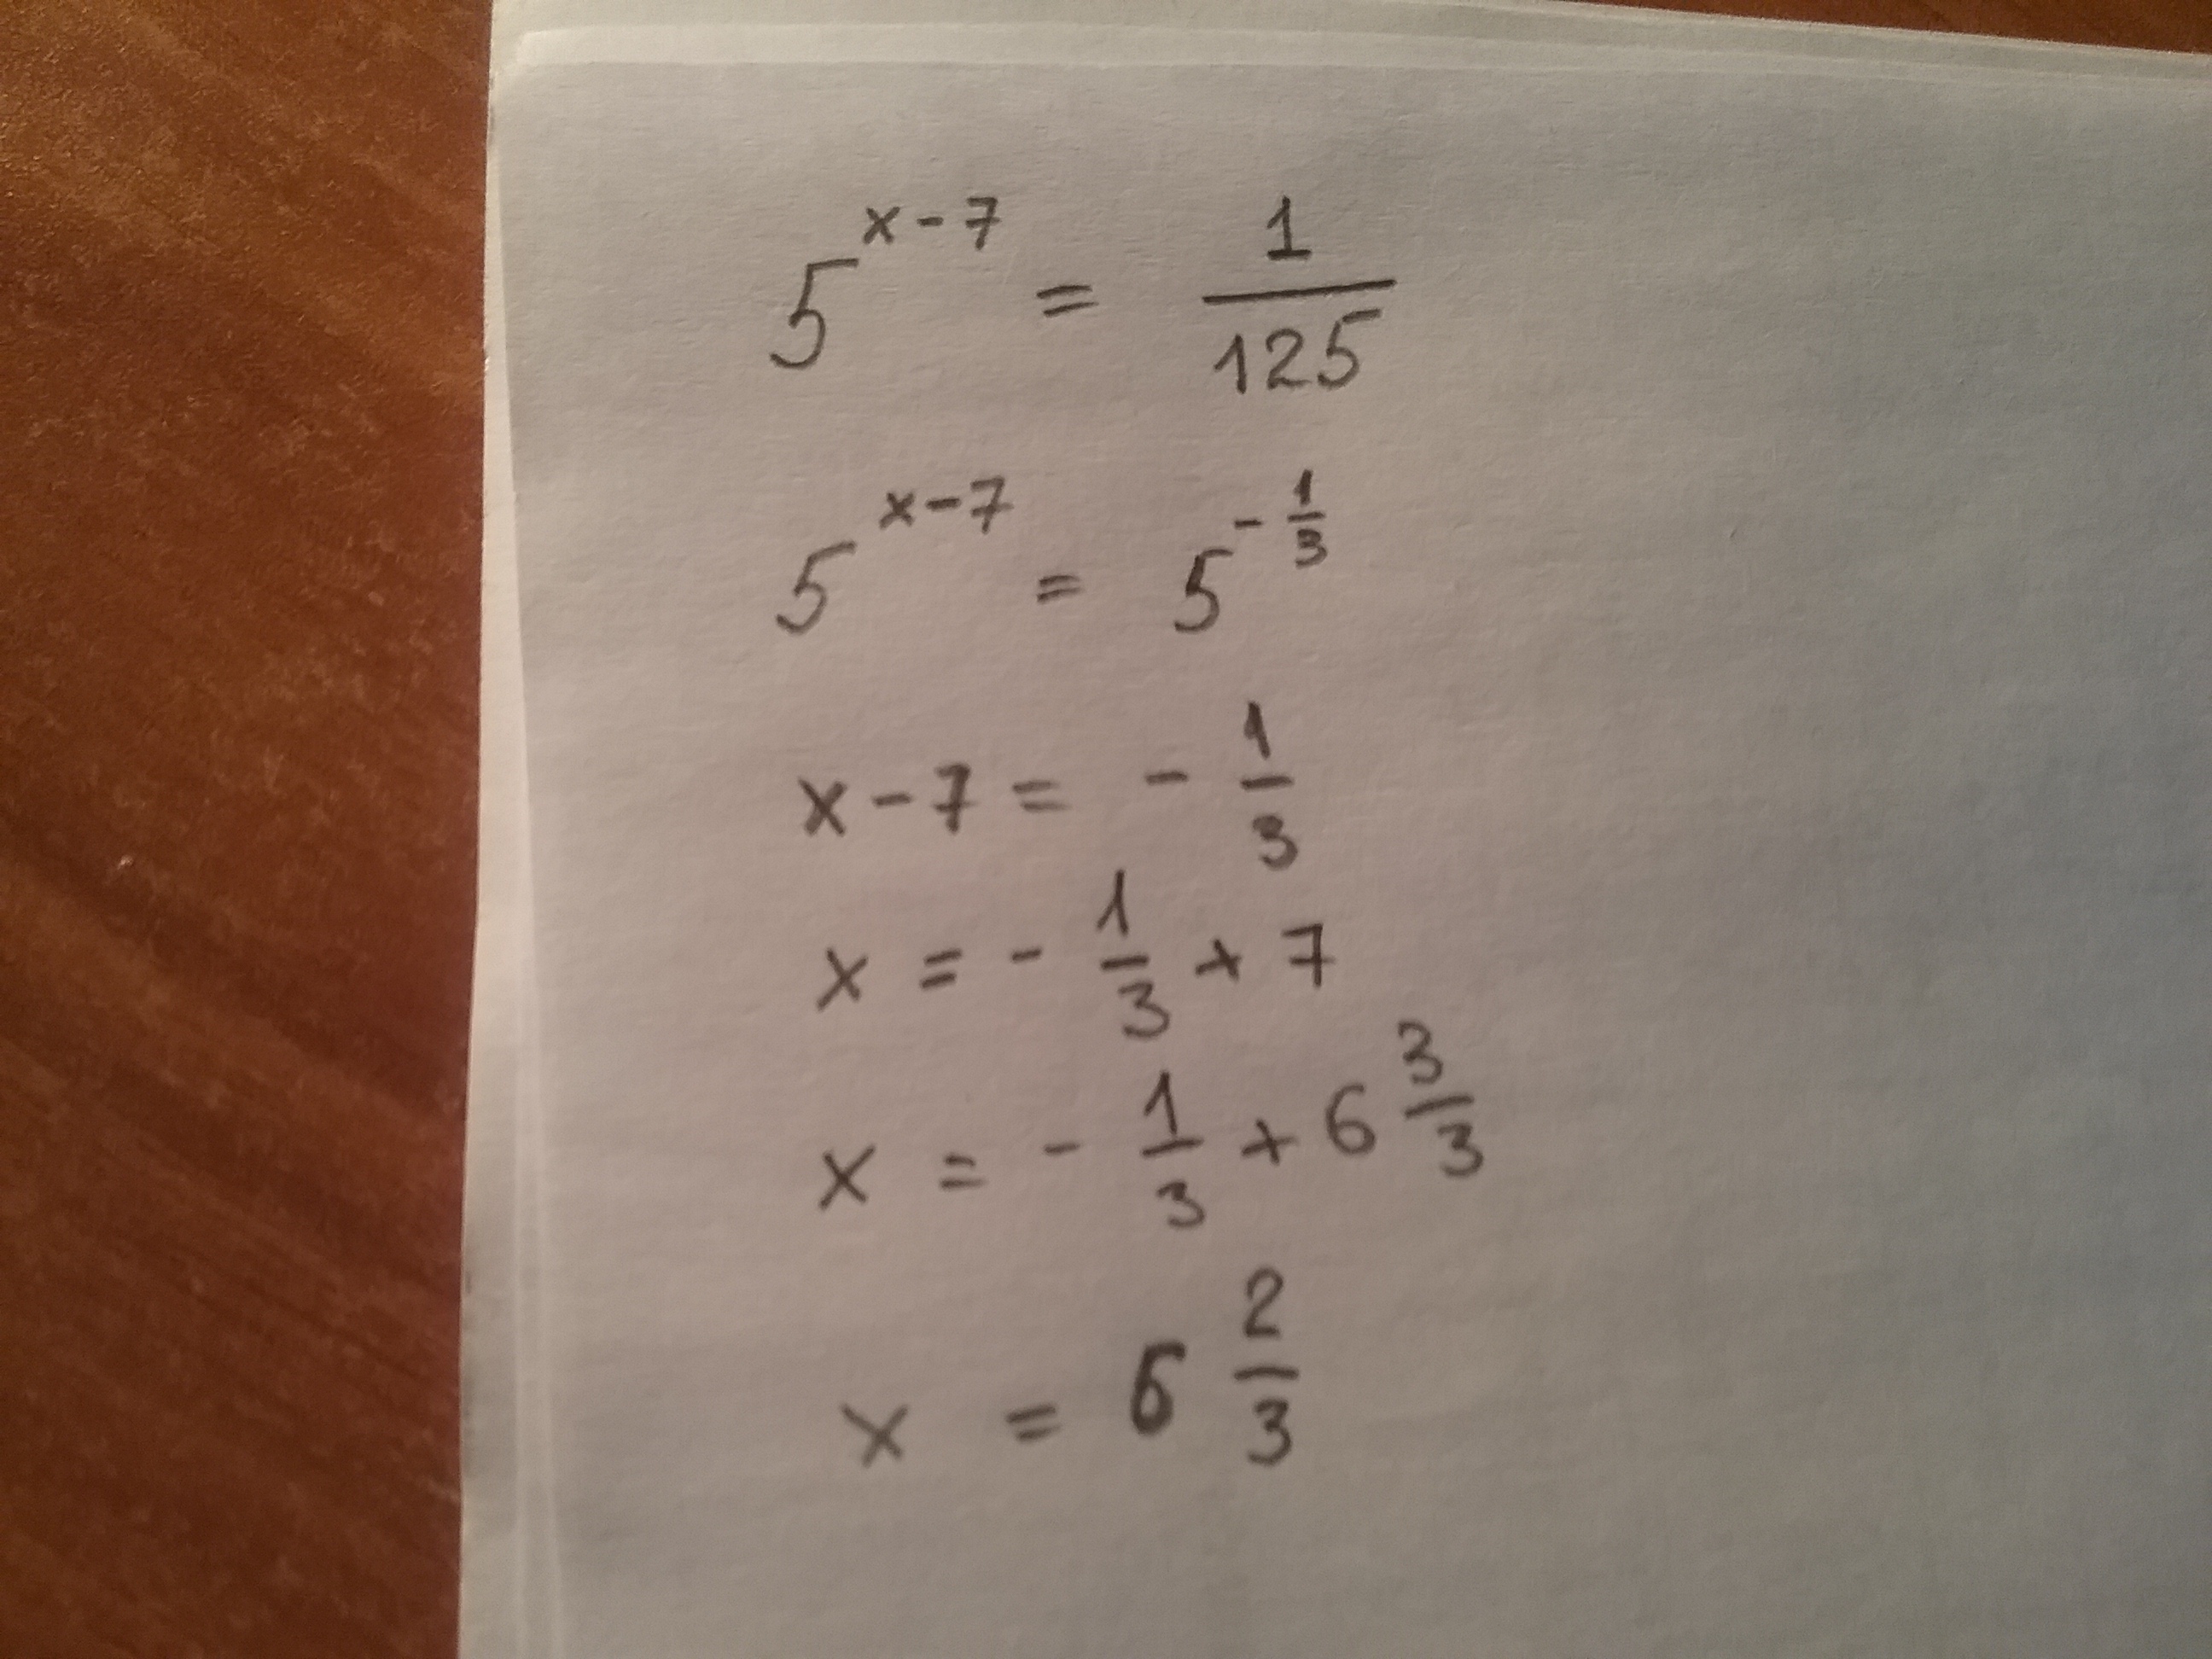 5^{x-7} = \frac{1}{125}
5^{x-7} = 5^{-\frac{1}{3}}
x-7 = -\frac{1}{3}
x = -\frac{1}{3} + 7
x = -\frac{1}{3} + 6\frac{3}{3}
x = 6\frac{2}{3}